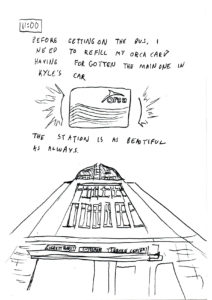 11:00
BEFORE GETTING ON THE BUS, I
NEED TO REFILL MY ORCA CARD
HAVING FOR GOTTEN THE MAIN ONE IN
KYLE'S CAR
Orca
THE STATION IS AS BEAUTIFUL
AS ALWAYS.